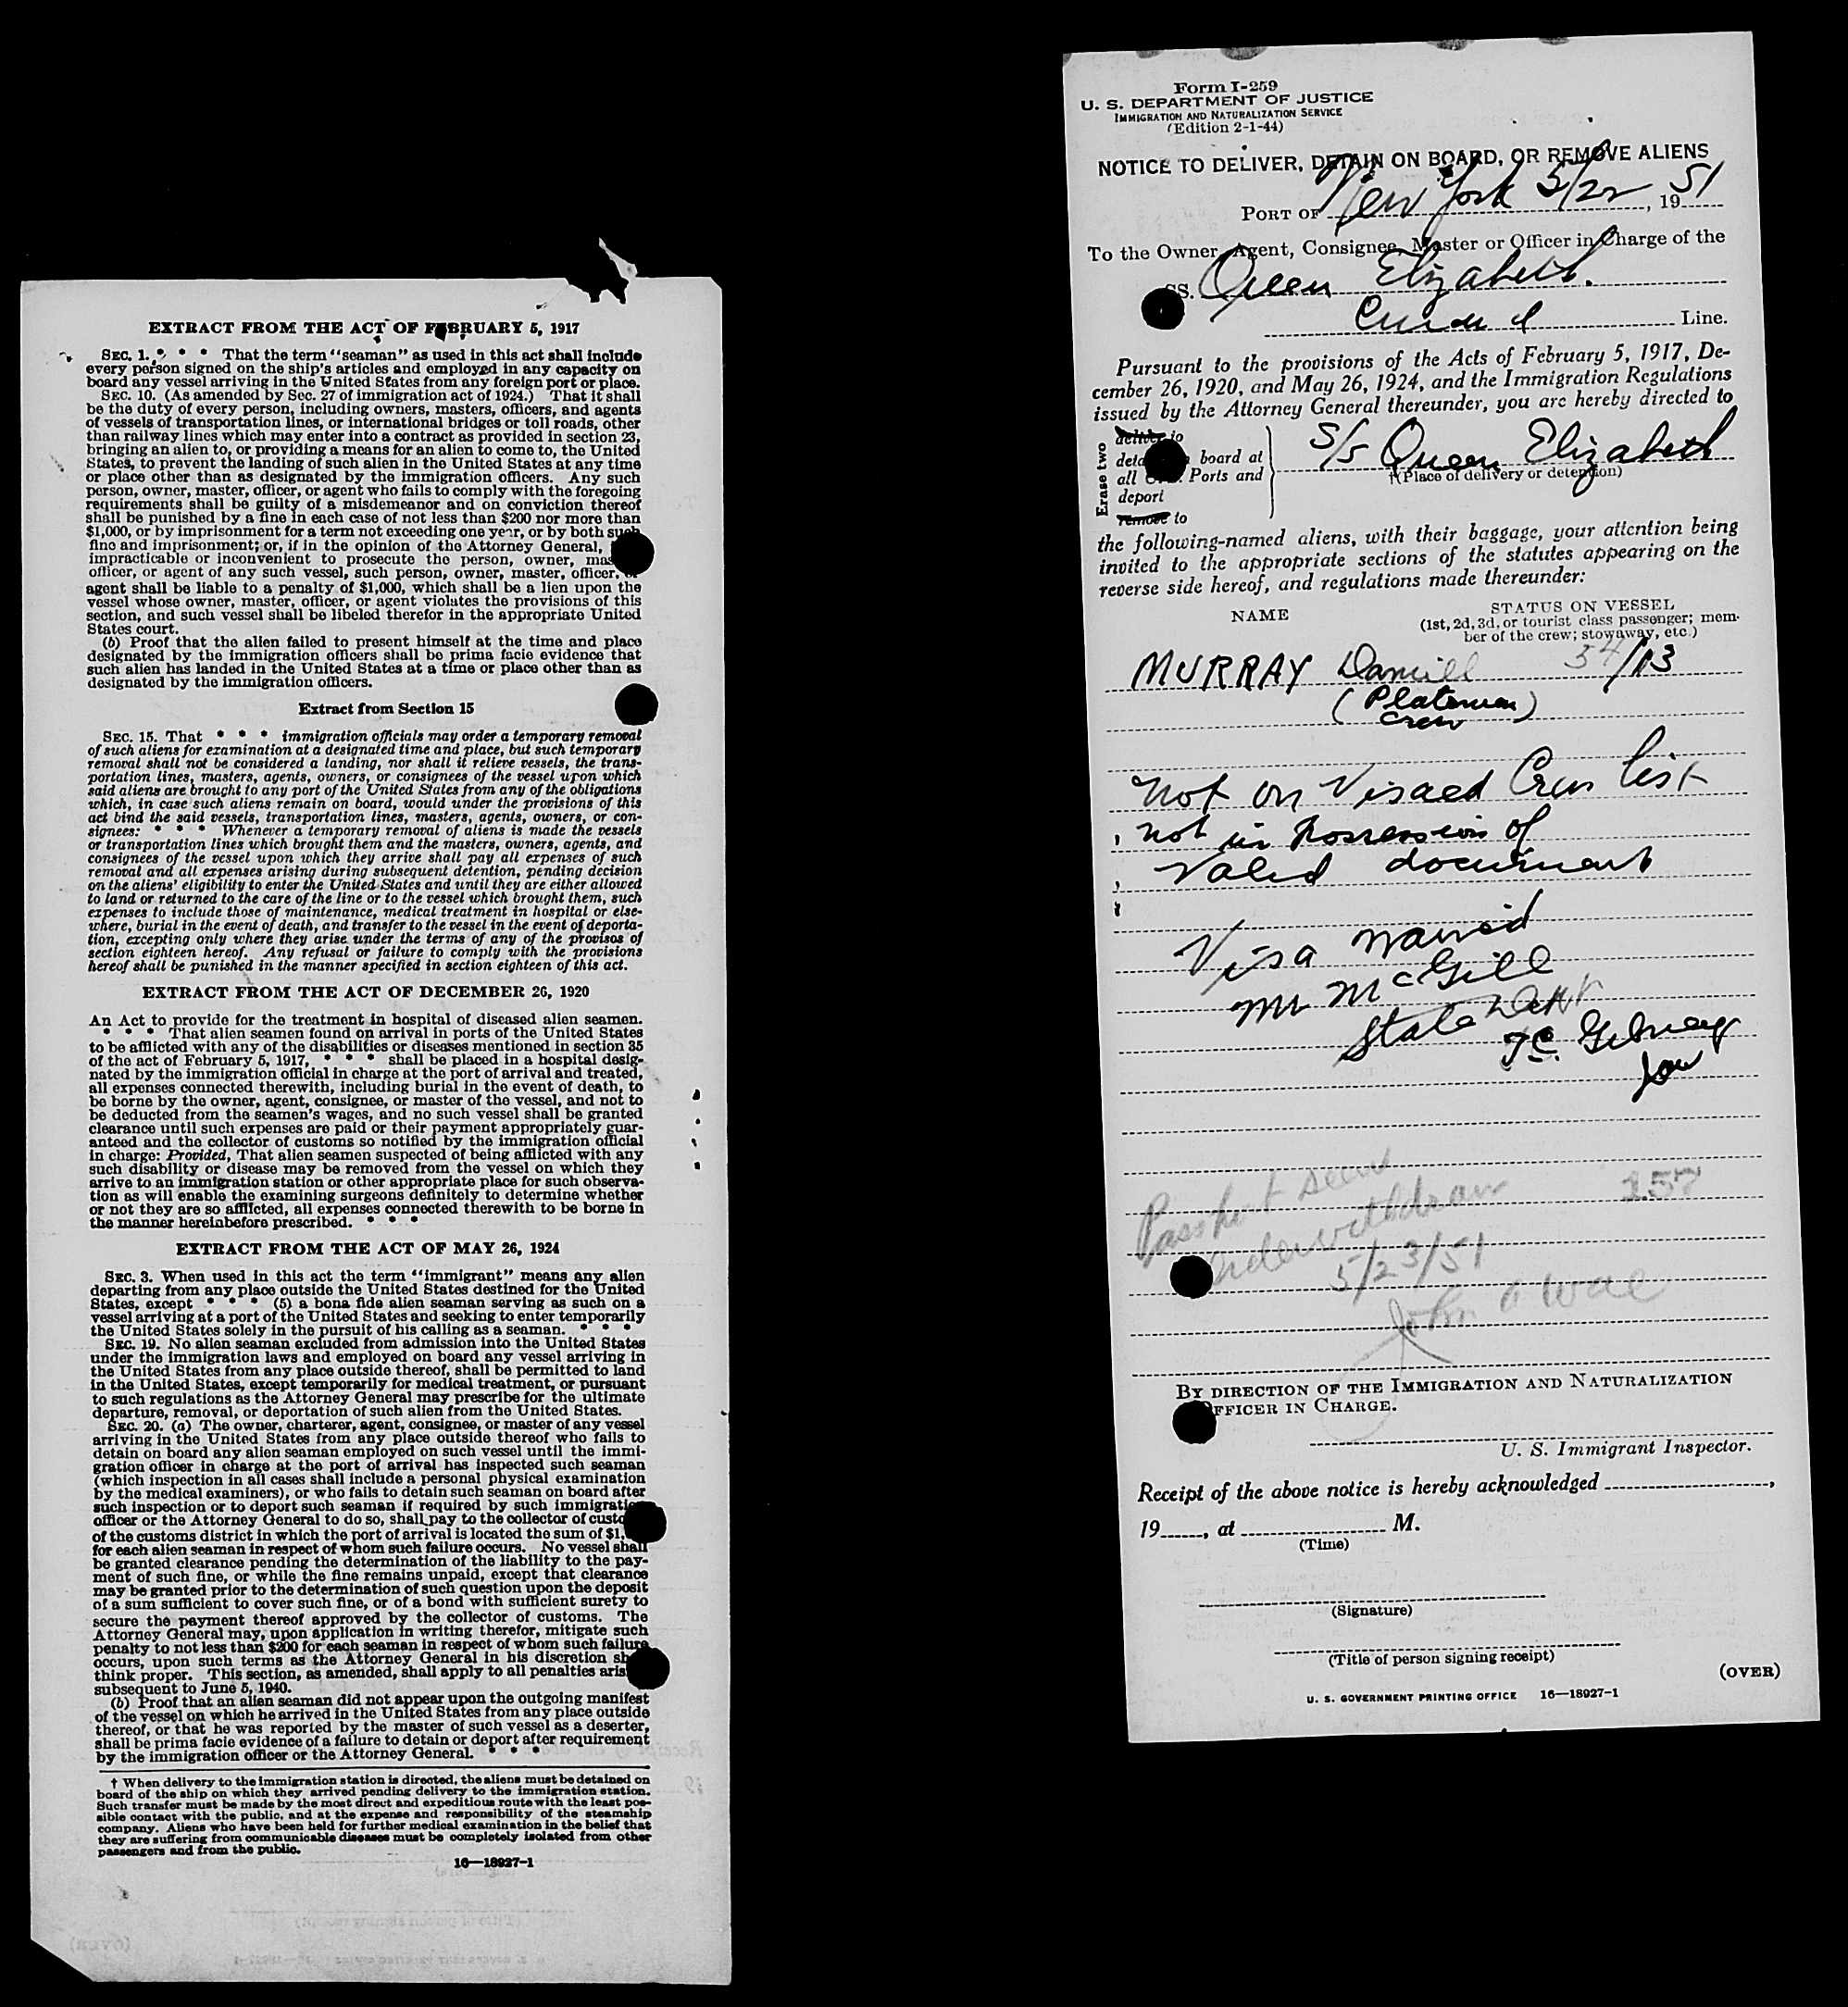 EXTRACT FROM THE ACT OF FEBRUARY 5, 1917
SEC. 1. * * * That the term "seaman" as used in this act shall include
every person signed on the ship's articles and employed in any capacity on
board any vessel arriving in the United States from any foreign port or place.
SEC. 10. (As amended by Sec. 27 of immigration act of 1924.) That it shall
be the duty of every person, including owners, masters, officers, and agents
of vessels of transportation lines, or international bridges or toll roads, other
than railway lines which may enter into a contract as provided in section 23,
bringing an alien to, or providing a means for an alien to come to, the United
States, to prevent the landing of such alien in the United States at any time
or place other than as designated by the immigration officers. Any such
person, owner, master, officer, or agent who fails to comply with the foregoing
requirements shall be guilty of a misdemeanor and on conviction thereof
shall be punished by a fine in each case of not less than $200 nor more than
$1,000, or by imprisonment for a term not exceeding one year, or by both such
fine and imprisonment; or, if in the opinion of the Attorney General,
impracticable or inconvenient to prosecute the person, owner, mas
officer, or agent of any such vessel, such person, owner, master, officer, or
agent shall be liable to a penalty of $1,000, which shall be a lien upon the
vessel whose owner, master, officer, or agent violates the provisions of this
section, and such vessel shall be libeled therefor in the appropriate United
States court.
(b) Proof that the alien failed to present himself at the time and place
designated by the immigration officers shall be prima facie evidence that
such alien has landed in the United States at a time or place other than as
designated by the immigration officers.
Extract from Section 15
SEC. 15. That * * * immigration officials may order a temporary removal
of such aliens for examination at a designated time and place, but such temporary
removal shall not be considered a landing, nor shall it relieve vessels, the trans-
portation lines, masters, agents, owners, or consignees of the vessel upon which
said aliens are brought to any port of the United States from any of the obligations
which, in case such aliens remain on board, would under the provisions of this
act bind the said vessels, transportation lines, masters, agents, owners, or con-
signees: * * * Whenever a temporary removal of aliens is made the vessels
or transportation lines which brought them and the masters, owners, agents, and
consignees of the vessel upon which they arrive shall pay all expenses of such
removal and all expenses arising during subsequent detention, pending decision
on the aliens' eligibility to enter the United States and until they are either allowed
to land or returned to the care of the line or to the vessel which brought them, such
expenses to include those of maintenance, medical treatment in hospital or else-
where, burial in the event of death, and transfer to the vessel in the event of deporta-
tion, excepting only where they arise under the terms of any of the provisos of
section eighteen hereof. Any refusal or failure to comply with the provisions
hereof shall be punished in the manner specified in section eighteen of this act.
EXTRACT FROM THE ACT OF DECEMBER 26, 1920
An Act to provide for the treatment in hospital of diseased alien seamen.
* * * That alien seamen found on arrival in ports of the United States
to be afflicted with any of the disabilities or diseases mentioned in section 35
of the act of February 5, 1917, * * * shall be placed in a hospital desig-
nated by the immigration official in charge at the port of arrival and treated,
all expenses connected therewith, including burial in the event of death, to
be borne by the owner, agent, consignee, or master of the vessel, and not to
be deducted from the seamen's wages, and no such vessel shall be granted
clearance until such expenses are paid or their payment appropriately guar-
anteed and the collector of customs so notified by the immigration official
in charge: Provided, That alien seamen suspected of being afflicted with any
such disability or disease may be removed from the vessel on which they
arrive to an immigration station or other appropriate place for such observa-
tion as will enable the examining surgeons definitely to determine whether
or not they are so afflicted, all expenses connected therewith to be borne in
the manner hereinbefore prescribed. * * *
EXTRACT FROM THE ACT OF MAY 26, 1924
SEC. 3. When used in this act the term "immigrant" means any alien
departing from any place outside the United States destined for the United
States, except * * * (5) a bona fide alien seaman serving as such on a
vessel arriving at a port of the United States and seeking to enter temporarily
the United States solely in the pursuit of his calling as a seaman. * * *
SEC. 19. No alien seaman excluded from admission into the United States
under the immigration laws and employed on board any vessel arriving in
the United States from any place outside thereof, shall be permitted to land
in the United States, except temporarily for medical treatment, or pursuant
to such regulations as the Attorney General may prescribe for the ultimate
departure, removal, or deportation of such alien from the United States.
SEC. 20. (a) The owner, charterer, agent, consignee, or master of any vessel
arriving in the United States from any place outside thereof who fails to
detain on board any alien seaman employed on such vessel until the immi-
gration officer in charge at the port of arrival has inspected such seaman
(which inspection in all cases shall include a personal physical examination
by the medical examiners), or who fails to detain such seaman on board after
such inspection or to deport such seaman if required by such immigration
officer or the Attorney General to do so, shall pay to the collector of custo
of the customs district in which the port of arrival is located the sum of $1,
for each alien seaman in respect of whom such failure occurs. No vessel shall
be granted clearance pending the determination of the liability to the pay-
ment of such fine, or while the fine remains unpaid, except that clearance
may be granted prior to the determination of such question upon the deposit
of a sum sufficient to cover such fine, or of a bond with sufficient surety to
secure the payment thereof approved by the collector of customs. The
Attorney General may, upon application in writing therefor, mitigate such
penalty to not less than $200 for each seaman in respect of whom such failure
occurs, upon such terms as the Attorney General in his discretion sh
think proper. This section, as amended, shall apply to all penalties aris
subsequent to June 5, 1940.
(b) Proof that an alien seaman did not appear upon the outgoing manifest
of the vessel on which he arrived in the United States from any place outside
thereof, or that he was reported by the master of such vessel as a deserter,
shall be prima facie evidence of a failure to detain or deport after requirement
by the immigration officer or the Attorney General. * * *
† When delivery to the immigration station is directed, the aliens must be detained on
board of the ship on which they arrived pending delivery to the immigration station.
Such transfer must be made by the most direct and expeditious route with the least pos-
sible contact with the public, and at the expense and responsibility of the steamship
company. Aliens who have been held for further medical examination in the belief that
they are suffering from communicable diseases must be completely isolated from other
passengers and from the public.
16—18927-1
Form I-259
U. S. DEPARTMENT OF JUSTICE
IMMIGRATION AND NATURALIZATION SERVICE
(Edition 2-1-44)
NOTICE TO DELIVER, DETAIN ON BOARD, OR REMOVE ALIENS
PORT OF New York 5/22, 1951
To the Owner, Agent, Consignee, Master or Officer in Charge of the
SS. Queen Elizabeth.
Cunard Line.
Pursuant to the provisions of the Acts of February 5, 1917, De-
cember 26, 1920, and May 26, 1924, and the Immigration Regulations
issued by the Attorney General thereunder, you are hereby directed to
Erase two
deliver to
deta board at
all Ports and
deport
remove to
S/S Queen Elizabeth
†(Place of delivery or detention)
the following-named aliens, with their baggage, your attention being
invited to the appropriate sections of the statutes appearing on the
reverse side hereof, and regulations made thereunder:
NAME
STATUS ON VESSEL
(1st, 2d, 3d, or tourist class passenger; mem-
ber of the crew; stowaway, etc.)
MURRAY Daniell 34/13
(Plateman)
crew
Not on Visaed Crew list
not in Possession of
Valid document
Visa waived
Mr McGill
State Dept
Passport seen
Order withdrawn 157
5/23/51
John
BY DIRECTION OF THE IMMIGRATION AND NATURALIZATION
OFFICER IN CHARGE.
U. S. Immigrant Inspector.
Receipt of the above notice is hereby acknowledged
19 , at M.
(Time)
(Signature)
(Title of person signing receipt)
(OVER)
U. S. GOVERNMENT PRINTING OFFICE 16—18927-1